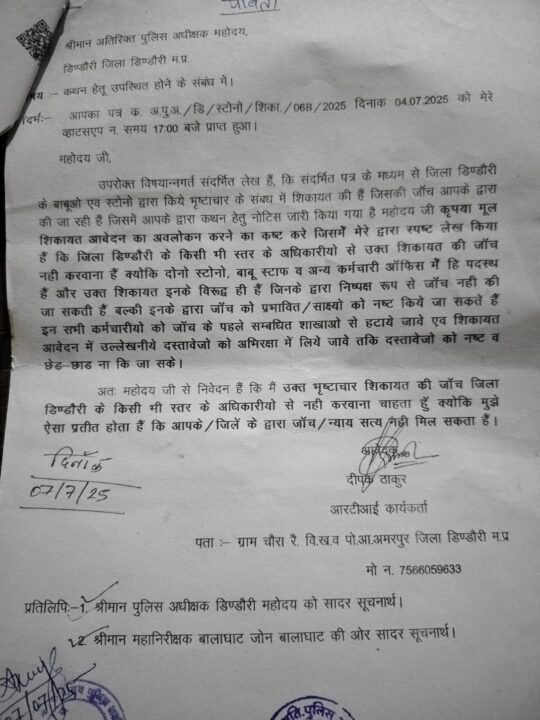 पावती
श्रीमान अतिरिक्त पुलिस अधीक्षक महोदय,
डिण्डौरी जिला डिण्डौरी म.प्र.
:- कथन हेतू उपस्थित होने के संबध में।
:- आपका पत्र क. अ.पु.अ./डि/स्टोनो/शिका./06B/2025 दिनाक 04.07.2025 को मेरे
व्हाटसएप न. समय 17:00 बजे प्राप्त हुआ।
महोदय जी,
उपरोक्त विषयान्नगर्त संदर्भित लेख हैं, कि संदर्भित पत्र के मध्यम से जिला डिण्डौरी
के बाबूओ एव स्टोनो द्वारा किये भृष्टाचार के संबध में शिकायत की हैं जिसकी जॉच आपके द्वारा
की जा रही हैं जिसमें आपके द्वारा कथन हेतु नोटिस जारी किया गया है महोदय जी कृपया मूल
शिकायत आबेदन का अवलोकन करने का कष्ट करे जिसमें मेरे द्वारा स्पष्ट लेख किया
हैं कि जिला डिण्डौरी के किसी भी स्तर के अधिकारीयो से उक्त शिकायत की जॉच
नही करवाना हैं क्योकि दोनो स्टोनो, बाबू स्टाफ व अन्य कर्मचारी ऑफिस में हि पदस्थ
हैं और उक्त शिकायत इनके विरूद्व ही हैं जिनके द्वारा निष्पक्ष रूप से जॉच नही की
जा सकती हैं बल्की इनके द्वारा जॉच को प्रभावित/साक्ष्यो को नष्ट किये जा सकते हैं
इन सभी कर्मचारीयो को जॉच के पहले सम्बधित शाखाओ से हटाये जावे एव शिकायत
आवेदन में उल्लेखनीये दस्तावेजो को अभिरक्षा में लिये जावे तकि दस्तावेजो को नष्ट व
छेड–छाड ना कि जा सके।
अतः महोदय जी से निवेदन हैं कि मैं उक्त भृष्टाचार शिकायत की जॉच जिला
डिण्डौरी के किसी भी स्तर के अधिकारीयो से नही करवाना चाहता हुँ क्योकि मुझे
ऐसा प्रतीत होता हैं कि आपके/जिलें के द्वारा जॉच/न्याय सत्य नही मिल सकता हैं।
दिनाँक
07/7/25
आवेदक
दीपक ठाकुर
आरटीआई कार्यकर्ता
पता :- ग्राम चौरा रै. वि.ख.व पो.आ.अमरपुर जिला डिण्डौरी म.प्र
मो न. 7566059633
प्रतिलिपिः–1. श्रीमान पुलिस अधीक्षक डिण्डौरी महोदय को सादर सूचनार्थ।
2. श्रीमान महानिरीक्षक बालाघाट जोन बालाघाट की ओर सादर सूचनार्थ।
07/07/25